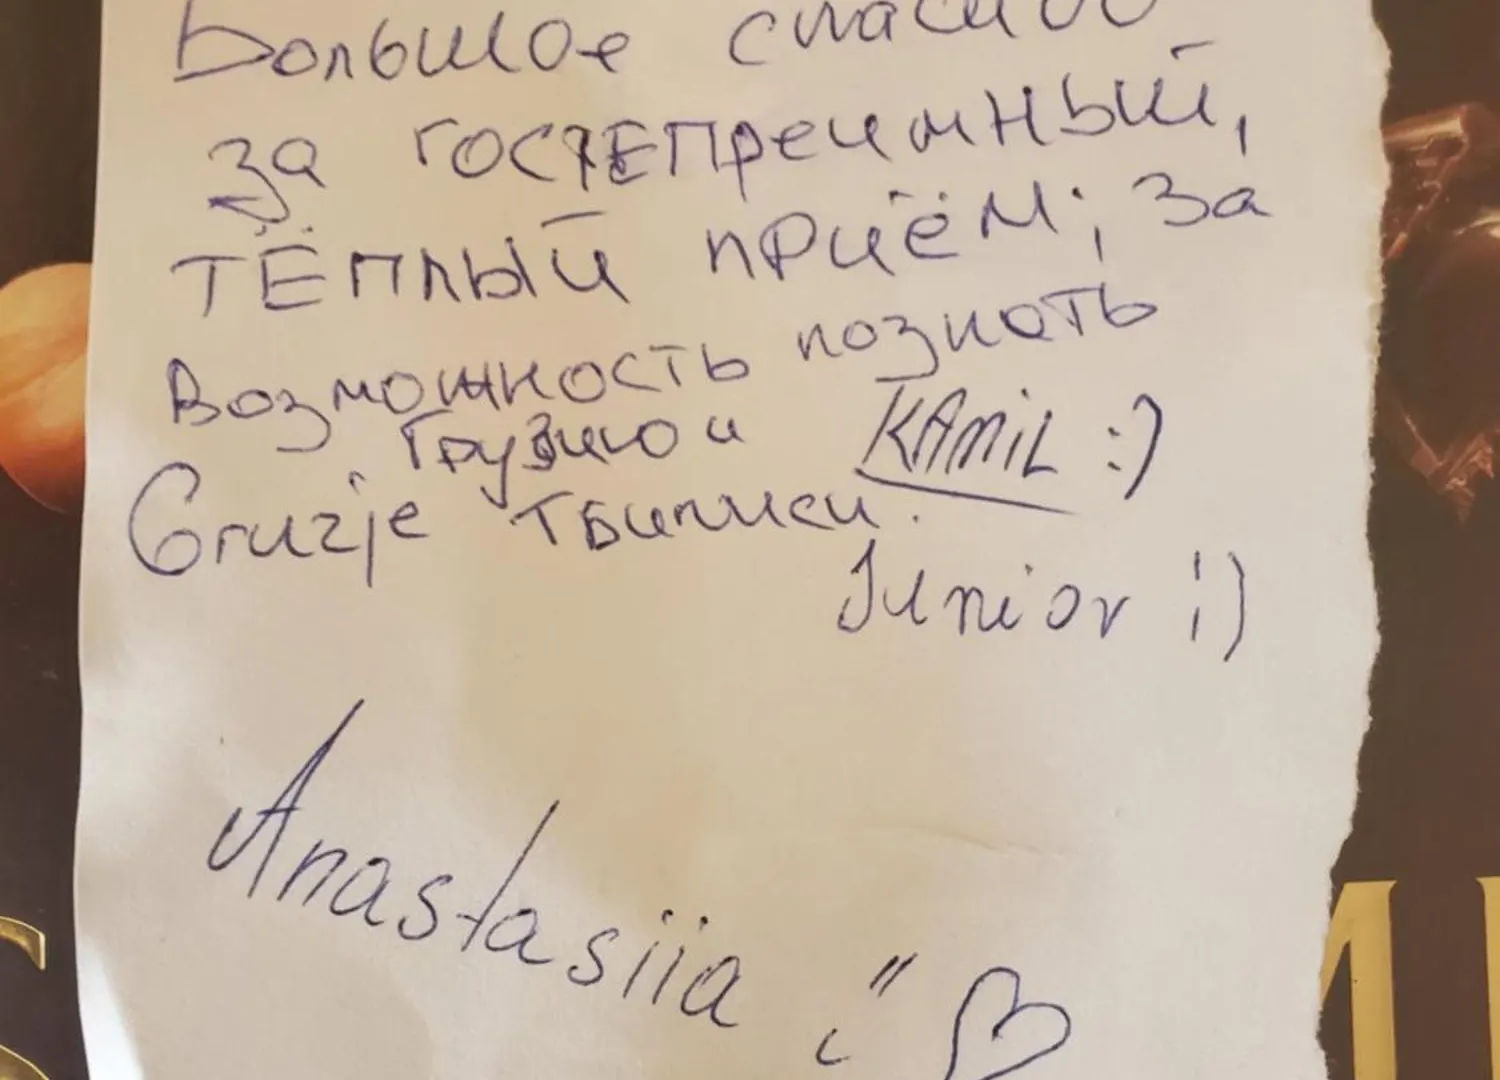 Большое спасибо
за гостЕпреимный,
тЁплый приём; за
Возможность познать
Грузию и KAMiL :)
Gruzje Тбилиси.
Junior ;)
Anastasiia